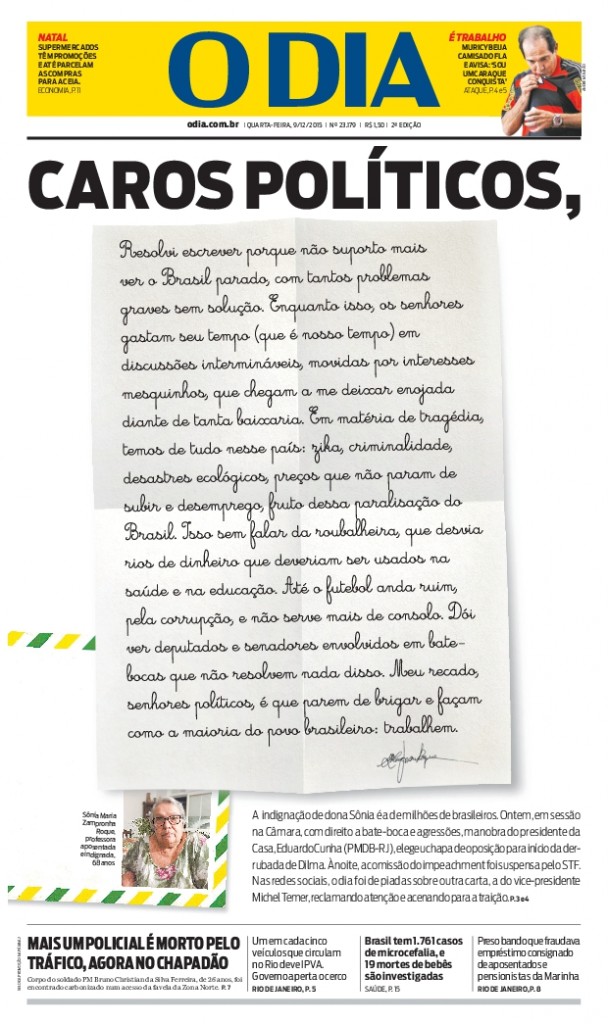 NATAL
SUPERMERCADOS
TÊM PROMOÇÕES
E ATÉ PARCELAM
AS COMPRAS
PARA A CEIA.
ECONOMIA, P. 11
O DIA
É TRABALHO
MURICY BEIJA
CAMISA DO FLA
E AVISA: 'SOU
UM CARA QUE
CONQUISTA'
ATAQUE, P. 4 e 5
odia.com.br | QUARTA-FEIRA, 9/12/2015 | Nº 23.179 | R$ 1,50 | 2ª EDIÇÃO
CAROS POLÍTICOS,
Resolvi escrever porque não suporto mais
ver o Brasil parado, com tantos problemas
graves sem solução. Enquanto isso, os senhores
gastam seu tempo (que é nosso tempo) em
discussões intermináveis, movidas por interesses
mesquinhos, que chegam a me deixar enojada
diante de tanta baixaria. Em matéria de tragédia,
temos de tudo nesse país: zika, criminalidade,
desastres ecológicos, preços que não param de
subir e desemprego, fruto dessa paralisação do
Brasil. Isso sem falar da roubalheira, que desvia
rios de dinheiro que deveriam ser usados na
saúde e na educação. Até o futebol anda ruim,
pela corrupção, e não serve mais de consolo. Dói
ver deputados e senadores envolvidos em bate-
bocas que não resolvem nada disso. Meu recado,
senhores políticos, é que parem de brigar e façam
como a maioria do povo brasileiro: trabalhem.
Sônia Maria
Zampronha
Roque,
professora
aposentada
e indignada,
68 anos
A indignação de dona Sônia é a de milhões de brasileiros. Ontem, em sessão
na Câmara, com direito a bate-boca e agressões, manobra do presidente da
Casa, Eduardo Cunha (PMDB-RJ), elege chapa de oposição para início da der-
rubada de Dilma. À noite, a comissão do impeachment foi suspensa pelo STF.
Nas redes sociais, o dia foi de piadas sobre outra carta, a do vice-presidente
Michel Temer, reclamando atenção e acenando para a traição. P. 3 e 4
MAIS UM POLICIAL É MORTO PELO
TRÁFICO, AGORA NO CHAPADÃO
Corpo do soldado PM Bruno Christian da Silva Ferreira, de 26 anos, foi
encontrado carbonizado num acesso da favela da Zona Norte. P. 7
Um em cada cinco
veículos que circulam
no Rio deve IPVA.
Governo aperta o cerco
RIO DE JANEIRO, P. 5
Brasil tem 1.761 casos
de microcefalia, e
19 mortes de bebês
são investigadas
SAÚDE, P. 15
Preso bando que fraudava
empréstimo consignado
de aposentados e
pensionistas da Marinha
RIO DE JANEIRO, P. 8